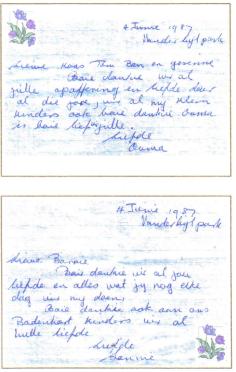 4 Junie 1987
Vanderbylpark
Liewe Klaas Tan Ben en gesinne
Baie dankie vir al
julle opoffering en liefde deur
al die jare, vir al my klein
kinders ook baie dankie Ouma
is baie lief vir julle.
Liefde
Ouma
4 Junie 1987
Vanderbylpark
Liewe
Baie dankie vir al jou
liefde en alles wat jy nog elke
dag vir my doen.
Baie dankie ook aan ons
Badenhort kinders vir al
hulle liefde
Liefde